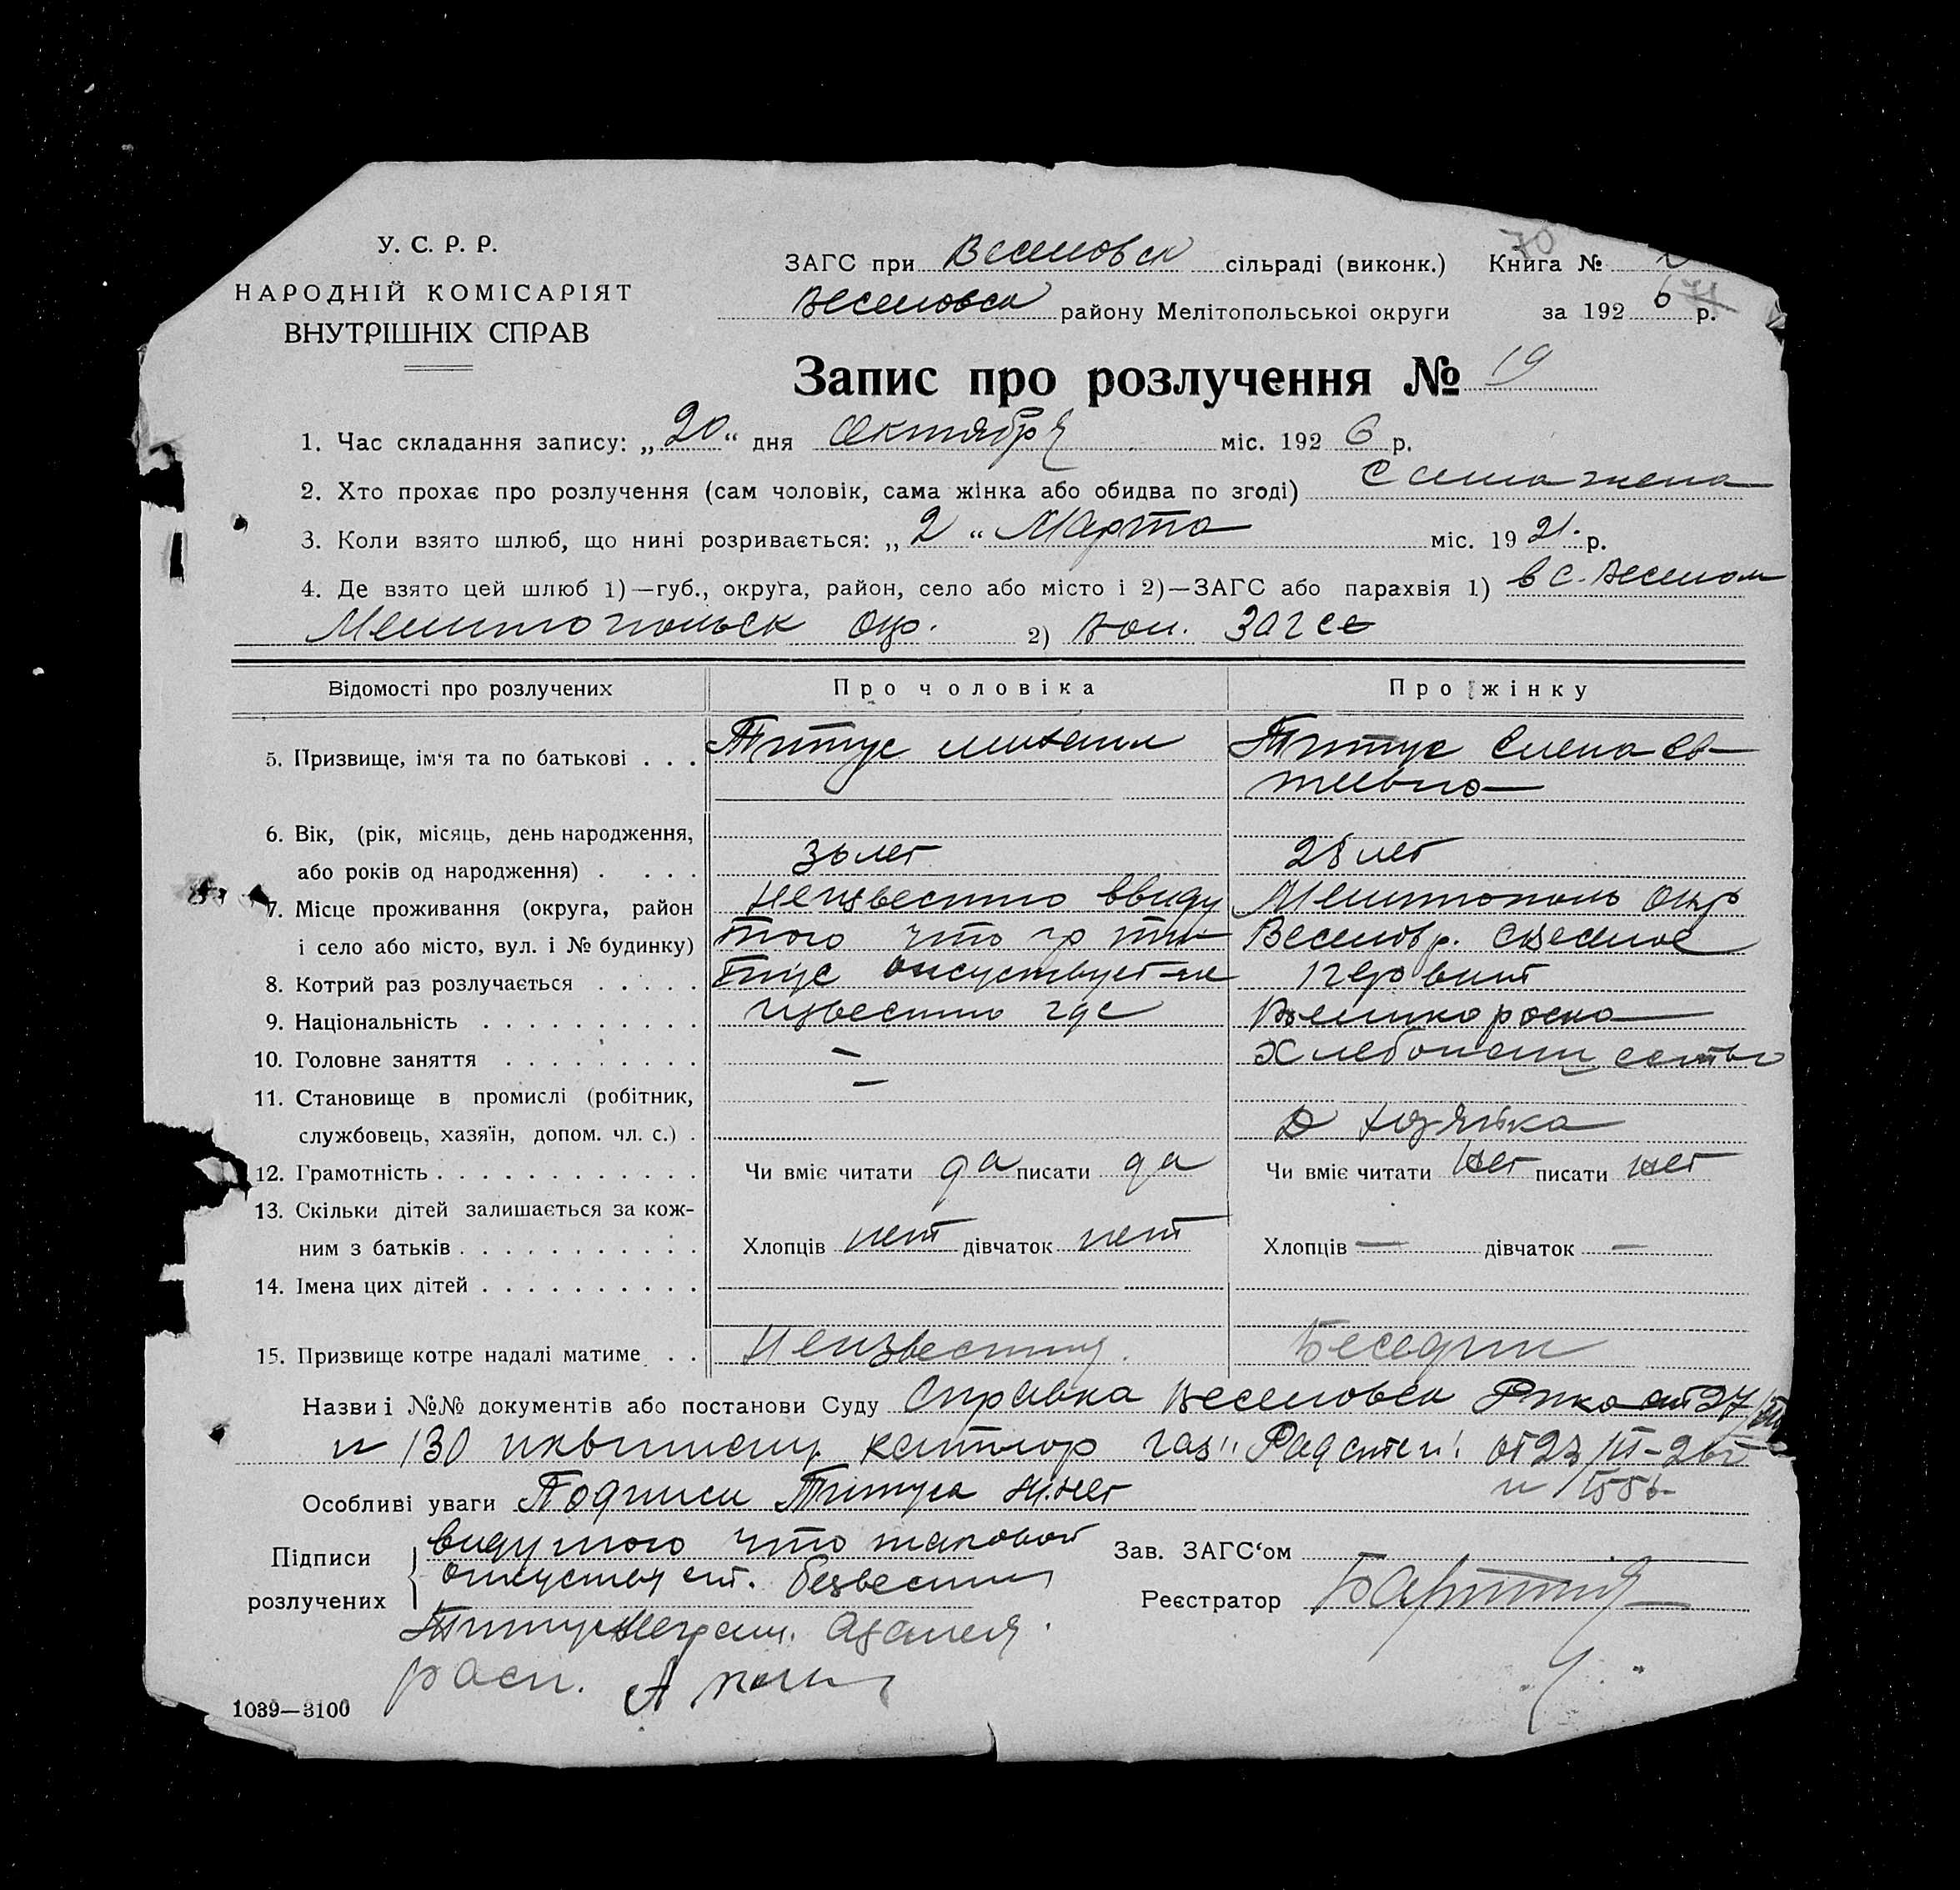 70
У. С. Р. Р.
НАРОДНІЙ КОМІСАРІЯТ
ВНУТРІШНІХ СПРАВ
ЗАГС при Веселовск сільраді (виконк.) Книга №
Веселовск району Мелітопольської округи за 1926 р.
Запис про розлучення № 19
1. Час складання запису: „20“ дня октября міс. 1926 р.
2. Хто прохає про розлучення (сам чоловік, сама жінка або обидва по згоді) Сама жена
3. Коли взято шлюб, що нині розривається: „2“ Марта міс. 1921 р.
4. Де взято цей шлюб 1)—губ., округа, район, село або місто і 2)—ЗАГС або парахвія 1) в с. Веселом
Мелитопольск окр. 2) Вол. Загсе
Відомості про розлучених Про чоловіка Про жінку
5. Призвище, ім'я та по батькові . . . Титус Михаил Титус Елена Ев-
6. Вік, (рік, місяць, день народження,
або років од народження) . . . . 36 лет 28 лет
7. Місце проживання (округа, район Неизвестно ввиду Мелитополь окр
і село або місто, вул. і № будинку) того что гр Ти- Веселов р. с Веселое
8. Котрий раз розлучається . . . . . тус отсуствует не первый
9. Національність . . . . . . . . . . известно где Великороска
10. Головне заняття . . . . . . . . . — Хлебопашество
11. Становище в промислі (робітник, —
службовець, хазяїн, допом. чл. с.) . Д хозяйка
12. Грамотність . . . . . . . . . . . . Чи вміє читати да писати да Чи вміє читати нет писати нет
13. Скільки дітей залишається за кож-
ним з батьків . . . . . . . . . . . Хлопців нет дівчаток нет Хлопців — дівчаток —
14. Імена цих дітей . . . . . . . . . .
15. Призвище котре надалі матиме . . Неизвестно Беседин
Назви і №№ документів або постанови Суду Справка Веселовск Рика от 27/III
н 130 и квитанц. контор газ. от 23/III-26г
Особливі уваги Подписи Титуса М. нет н 1556
Підписи ввиду того что таковой Зав. ЗАГС'ом
розлучених отсуствует. безвестно Реєстратор
Титус неграм.
1039—3100